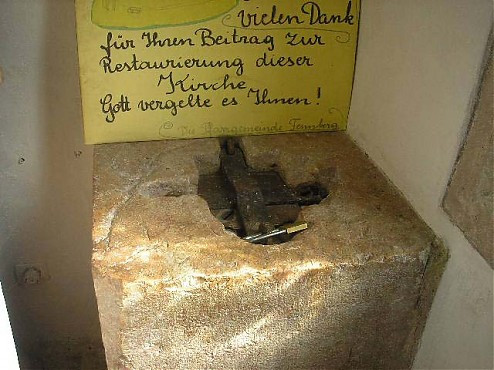 vielen Dank
für Ihren Beitrag zur
Restaurierung dieser
Kirche
Gott vergelte es Ihnen!
Die Pfarrgemeinde